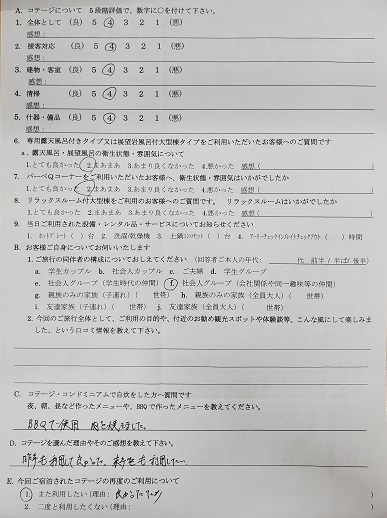 A. コテージについて　5段階評価で、数字に○を付けて下さい。
1. 全体として　(良) 5 4 3 2 1 (悪)
感想：
2. 接客対応　(良) 5 4 3 2 1 (悪)
感想：
3. 建物・客室　(良) 5 4 3 2 1 (悪)
感想：
4. 清掃　(良) 5 4 3 2 1 (悪)
感想：
5. 什器・備品　(良) 5 4 3 2 1 (悪)
感想：
6. 専用露天風呂付きタイプ又は展望岩風呂付大型棟タイプをご利用いただいたお客様へのご質問です
a. 露天風呂・展望風呂の衛生状態・雰囲気について
1.とても良かった 2.まあまあ 3.あまり良くなかった 4.悪かった 感想(　)
7. バーベQコーナーをご利用いただいたお客様へ、衛生状態・雰囲気はいかがでしたか
1.とても良かった 2.まあまあ 3.あまり良くなかった 4.悪かった 感想(　)
8. リラックスルーム付大型棟をご利用のお客様へのご質問です。　リラックスルームはいかがでしたか
1.とても良かった 2.まあまあ 3.あまり良くなかった 4.悪かった 感想(　)
9. 当日ご利用された設備・レンタル品・サービスについてお知らせください
1. ホットプレート (　) 台 2. 洗濯/乾燥機 3. 土鍋コンロセット (　) 台 4. アーリーチェックイン/レイトチェックアウト (　) 時間
B. お客様ご自身についてお伺いいたします
1. ご旅行の同伴者の構成についておしえてください (回答者ご本人の年代:　代 前半 / 半ば/ 後半)
a. 学生カップル b. 社会人カップル c. ご夫婦 d. 学生グループ
e. 社会人グループ (学生時代の仲間) f. 社会人グループ (会社関係や同一趣味等の仲間)
g. 親族のみの家族 (子連れ) (　世帯) h. 親族のみの家族 (全員大人) (　世帯)
i. 友達家族 (子連れ) (　世帯) j. 友達家族 (全員大人) (　世帯)
2. 今回のご旅行全体として、ご利用の目的や、付近のお勧め観光スポットや体験談等、こんな風にして楽しみま
した、という口コミ情報を教えて下さい。
C. コテージ・コンドミニアムで自炊をした方へ質問です
夜、朝、昼など作ったメニューや、BBQで作ったメニューを教えてください。
BBQで使用　肉を焼きました。
D. コテージを選んだ理由やそのご感想を教えて下さい。
昨年も利用して良かった。来年も利用したい。
E. 今回ご宿泊されたコテージの再度のご利用について
1. また利用したい (理由: 良かったから)
2. 二度と利用したくない (理由: